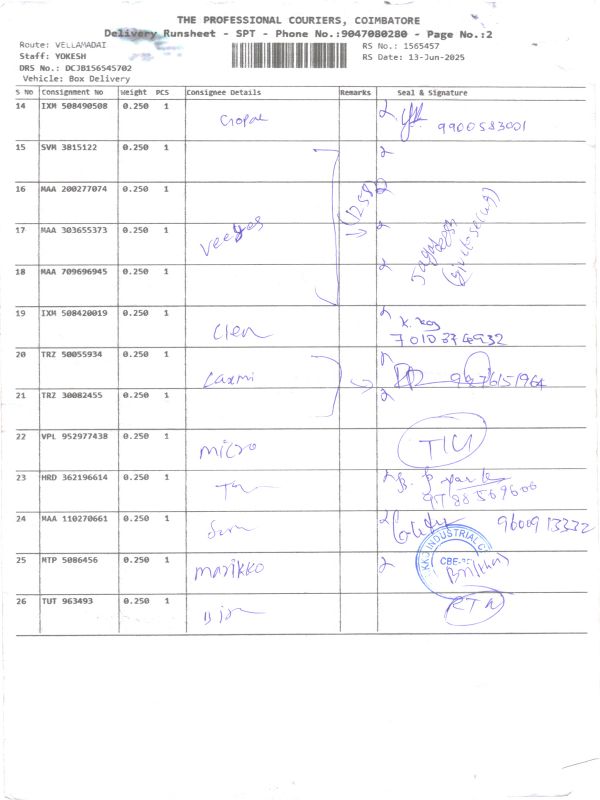 THE PROFESSIONAL COURIERS, COIMBATORE
Delivery Runsheet - SPT - Phone No.:9047080280 - Page No.:2
Route: VELLAMADAI
Staff: YOKESH
DRS No.: DCJB156545702
Vehicle: Box Delivery
RS No.: 1565457
RS Date: 13-Jun-2025
S No Consignment No Weight PCS Consignee Details Remarks Seal & Signature
14 IXM 508490508 0.250 1 Gopal 9900583001
15 SVM 3815122 0.250 1
16 MAA 200277074 0.250 1
17 MAA 303655373 0.250 1 Veeyes
18 MAA 709696945 0.250 1
19 IXM 508420019 0.250 1 Clen
20 TRZ 50055934 0.250 1 Laxmi
21 TRZ 30082455 0.250 1
22 VPL 952977438 0.250 1 micro
23 HRD 362196614 0.250 1
24 MAA 110270661 0.250 1 9600913332
25 MTP 5086456 0.250 1 Marikko
26 TUT 963493 0.250 1 RTN